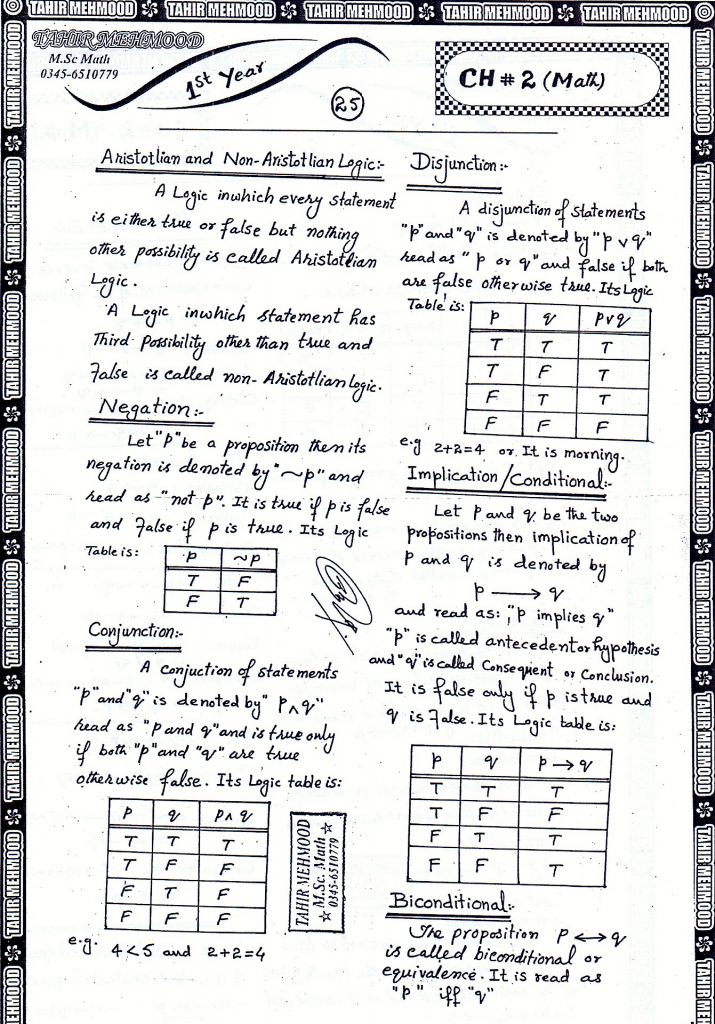 TAHIR MEHMOOD TAHIR MEHMOOD TAHIR MEHMOOD TAHIR MEHMOOD TAHIR MEHMOOD
TAHIR MEHMOOD
M.Sc Math
0345-6510779
1st Year
25
CH # 2 (Math)
Aristotlian and Non-Aristotlian Logic:-
A Logic inwhich every statement
is either true or false but nothing
other possibility is called Aristotlian
Logic.
A Logic inwhich statement has
Third possibility other than true and
False is called non-Aristotlian logic.
Negation:-
Let "p" be a proposition then its
negation is denoted by "~p" and
read as "not p". It is true if p is false
and False if p is true. Its Logic
Table is:
p ~p
T F
F T
Conjunction:-
A conjuction of statements
"p" and "q" is denoted by "p ∧ q"
read as "p and q" and is true only
if both "p" and "q" are true
otherwise false. Its Logic table is:
p q p ∧ q
T T T
T F F
F T F
F F F
e.g. 4 < 5 and 2+2=4
TAHIR MEHMOOD
M.Sc. Math
☆ 0345-6510779 ☆
Disjunction:-
A disjunction of statements
"p" and "q" is denoted by "p ∨ q"
read as "p or q" and false if both
are false otherwise true. Its Logic
Table is:
p q p∨q
T T T
T F T
F T T
F F F
e.g 2+2=4 or It is morning.
Implication /Conditional:-
Let p and q be the two
propositions then implication of
p and q is denoted by
p ⟶ q
and read as: "p implies q"
"p" is called antecedent or hypothesis
and "q" is called Consequent or Conclusion.
It is false only if p is true and
q is False. Its Logic table is:
p q p → q
T T T
T F F
F T T
F F T
Biconditional:-
The proposition p ⟷ q
is called biconditional or
equivalence. It is read as
"p" iff "q"